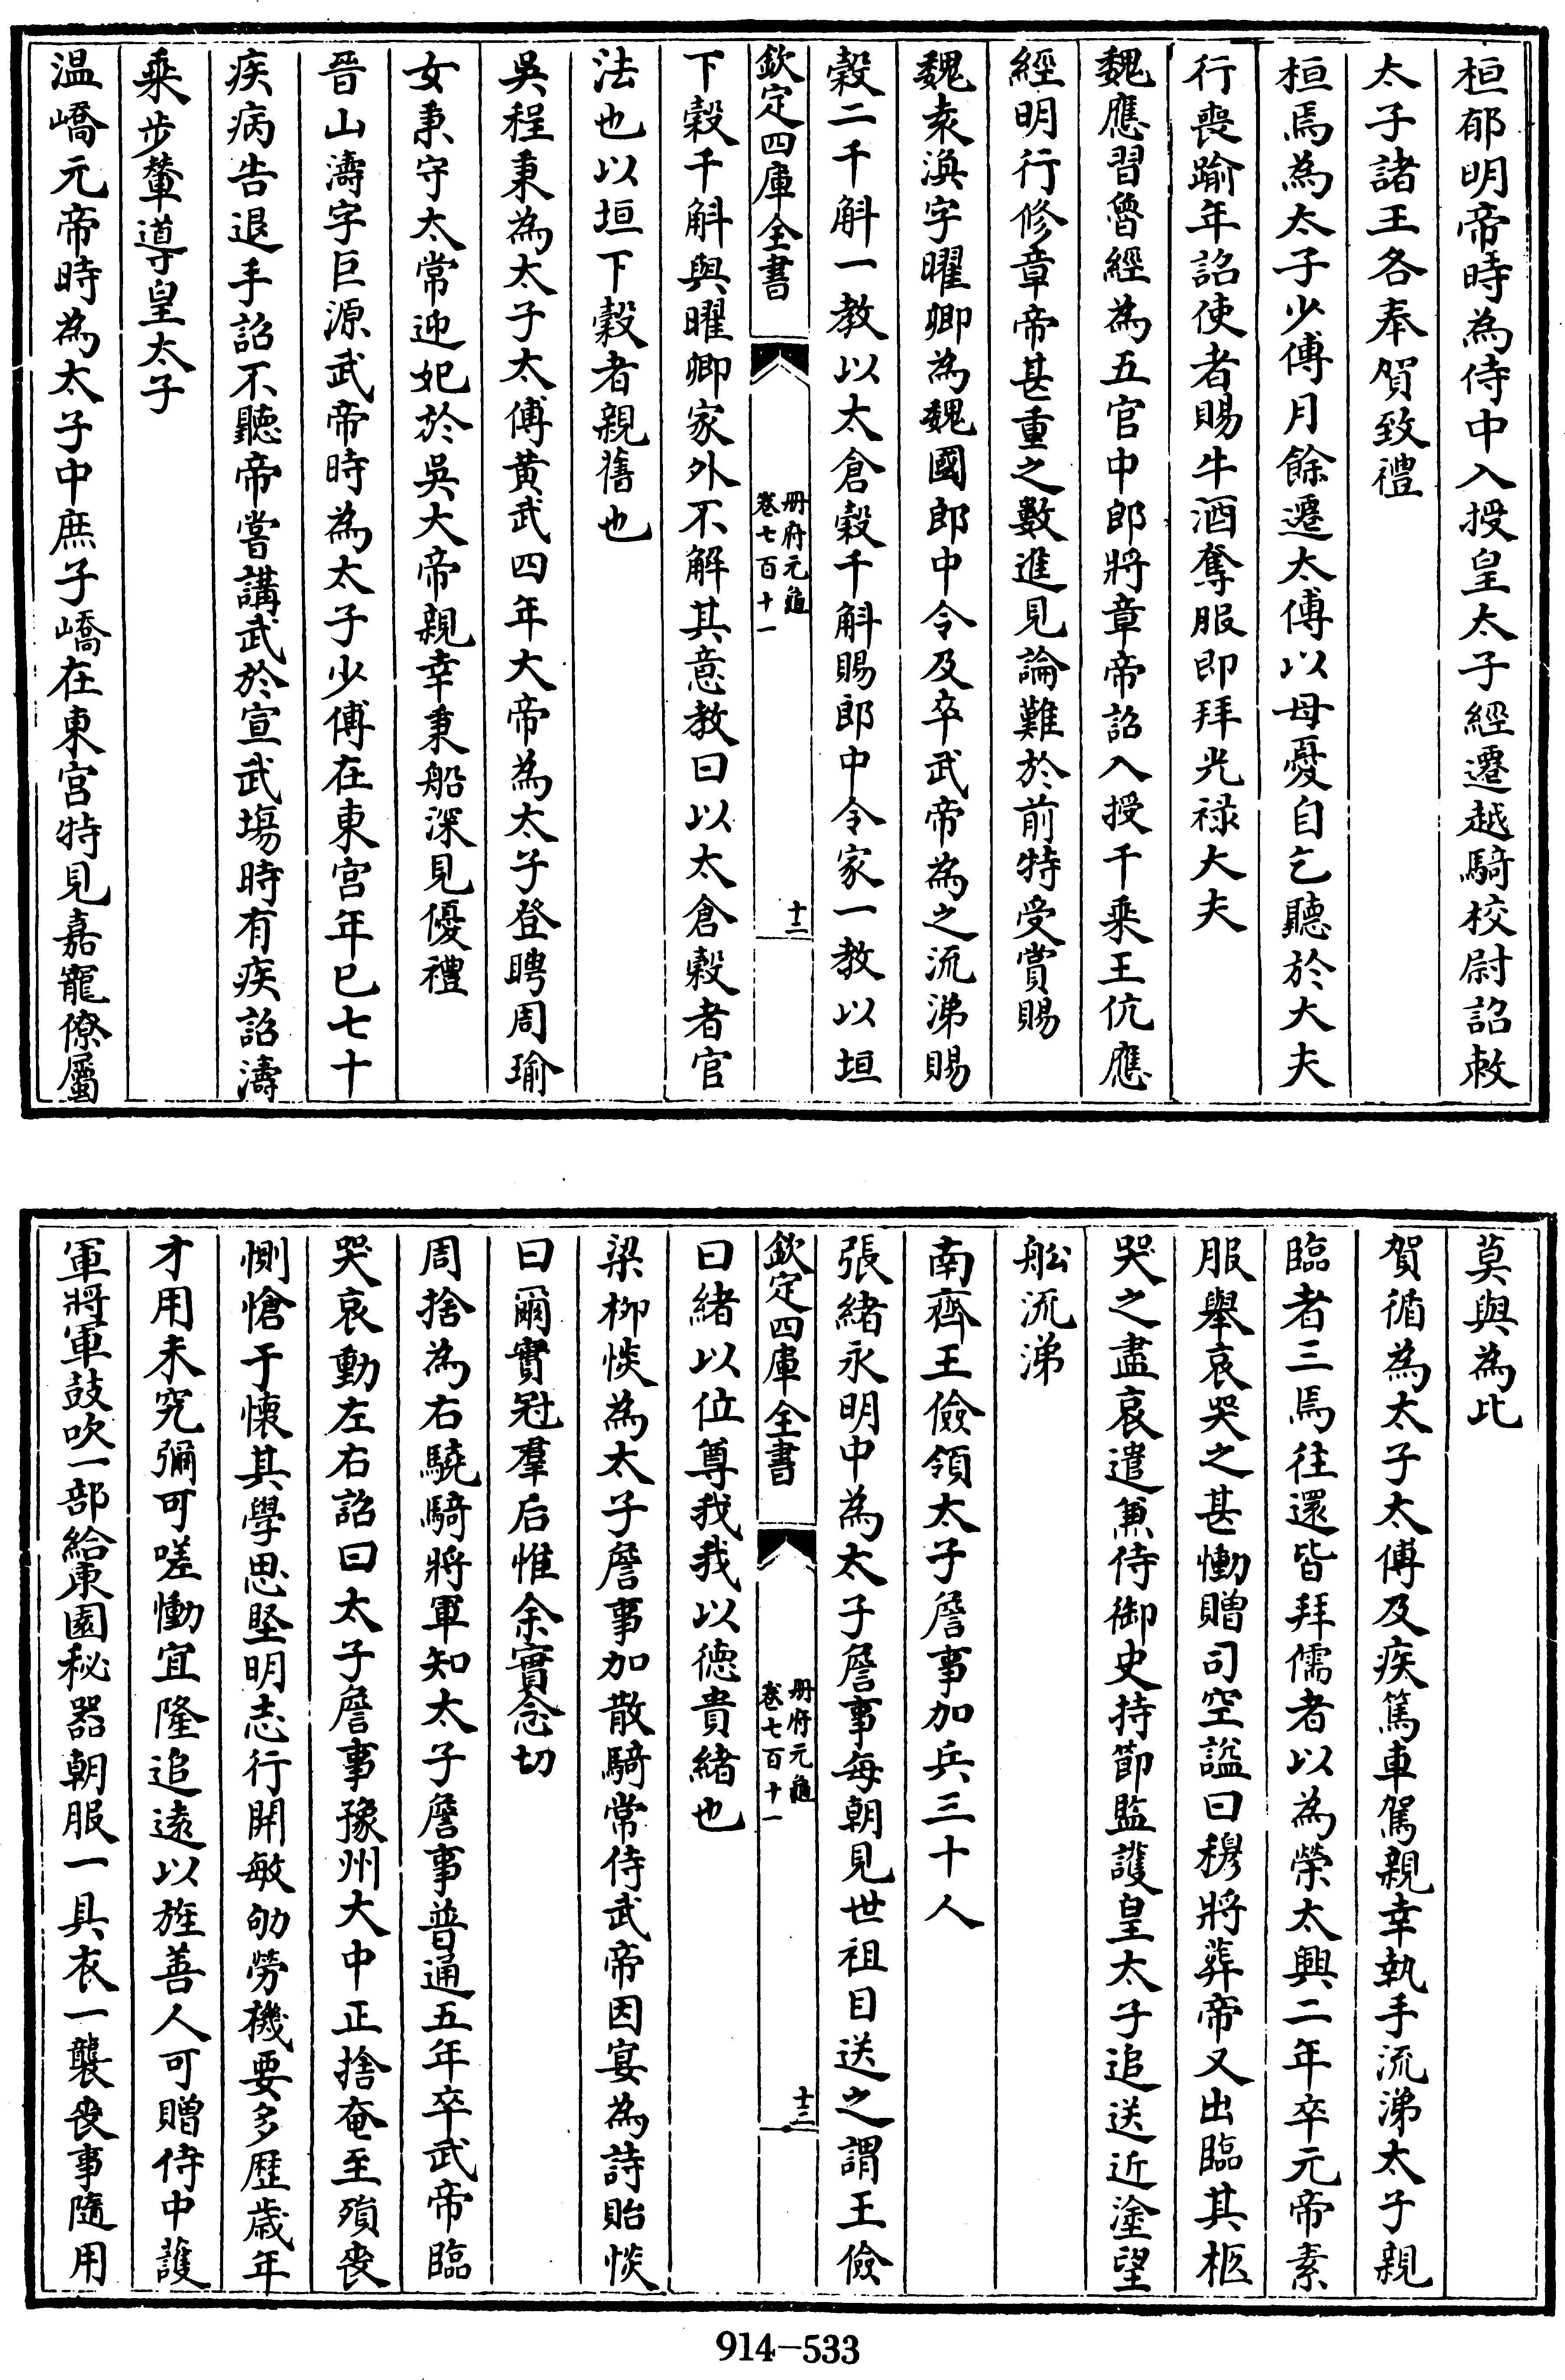 桓郁明帝時為侍中入授皇太子經遷越騎校尉詔敕
太子諸王各奉賀致禮
桓焉為太子少傅月餘遷太傅以母憂自乞聽於大夫
行喪踰年詔使者賜牛酒奪服即拜光祿大夫
魏應習魯經為五官中郎將章帝詔入授千乘王伉應
經明行修章帝甚重之數進見論難於前特受賞賜
魏袁渙字曜卿為魏國郎中令及卒武帝為之流涕賜
穀二千斛一教以太倉穀千斛賜郎中令家一教以垣
欽定四庫全書
冊府元龜
卷七百十一
十二
下穀千斛與曜卿家外不解其意教曰以太倉穀者官
法也以垣下穀者親舊也
吳程秉為太子太傅黃武四年大帝為太子登聘周瑜
女秉守太常迎妃於吳大帝親幸秉船深見優禮
晉山濤字巨源武帝時為太子少傅在東宮年已七十
疾病告退手詔不聽帝嘗講武於宣武場時有疾詔濤
乘步輦導皇太子
温嶠元帝時為太子中庶子嶠在東宮特見嘉寵僚屬
莫與為比
賀循為太子太傅及疾篤車駕親幸執手流涕太子親
臨者三焉往還皆拜儒者以為榮太興二年卒元帝素
服舉哀哭之甚慟贈司空諡曰穆將葬帝又出臨其柩
哭之盡哀遣兼侍御史持節監護皇太子追送近塗望
船流涕
南齊王儉領太子詹事加兵三十人
張緒永明中為太子詹事每朝見世祖目送之謂王儉
欽定四庫全書
冊府元龜
卷七百十一
十三
曰緒以位尊我我以德貴緒也
梁柳惔為太子詹事加散騎常侍武帝因宴為詩貽惔
曰爾實冠羣后惟余實念切
周捨為右驍騎將軍知太子詹事普通五年卒武帝臨
哭哀動左右詔曰太子詹事豫州大中正捨奄至殞喪
惻愴于懷其學思堅明志行開敏劬勞機要多歷歲年
才用未究彌可嗟慟宜隆追遠以旌善人可贈侍中護
軍將軍鼓吹一部給東園秘器朝服一具衣一襲喪事隨用
914-533